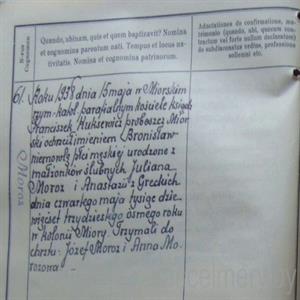 N-rus
Cognomen
Quando, ubinam, quis et quem baptizavit? Nomina
et cognomina parentum nati. Tempus et locus na-
tivitatis. Nomina et cognomina patrinorum.
Adnotationes de confirmatione, ma-
trimonio (quando, ubi, quocum con-
tractum vel forte nullum declaratum)
de subdiaconatus ordine, professione
sollemni etc.
61.
Moroz
Roku 1938 dnia 15 maja w Miorskim
rzym.-katol. parafialnym kościele ksiądz
Franciszek Kuksewicz proboszcz Mior
ski ochrzcił imieniem Bronisław
niemowlę płci męskiej urodzone z
małżonków ślubnych Juliana
Moroz i Anastazii z Greckich
dnia czwartego maja tysiąc dzie-
więćset trzydziestego ósmego roku
w kolonii Miory. Trzymali do
chrztu: Józef Moroz i Anna Mo-
rozowa.